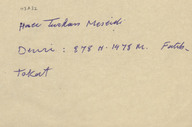 Hacı Turhan Mescidi
Devri : 878 H - 1478 M. Fatih-
Tokat